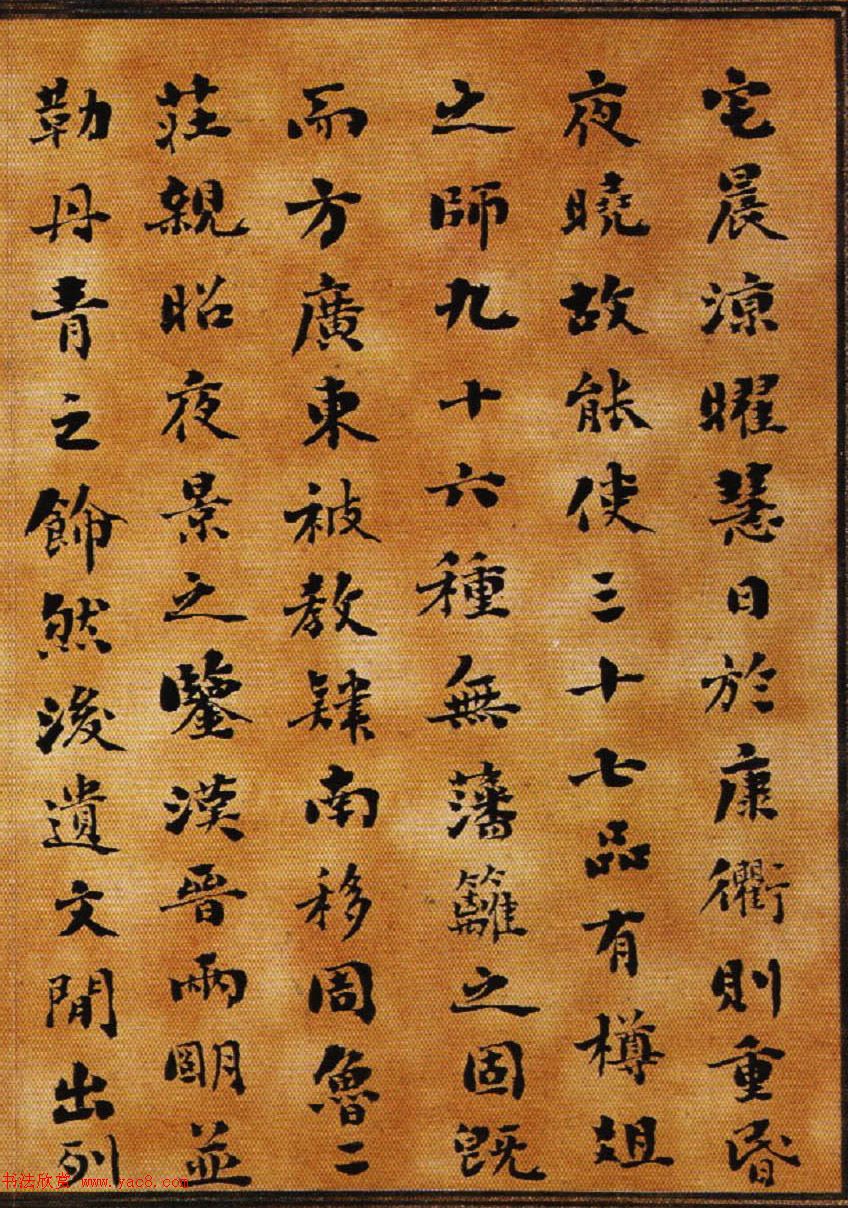 宅晨涼曜慧日於康衢則重昏
夜曉故能使三十七品有樽俎
之師九十六種無藩籬之固既
而方廣東被教肄南移周魯二
莊親昭夜景之鑒漢晉兩明並
勒丹青之飾然後遺文間出列
书法欣赏 www.yac8.com